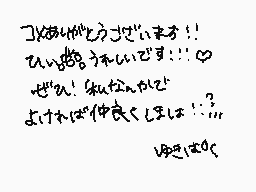 コメありがとうございます!!
ひぃぃうれしいです!!!♡
ぜひ!私なんかで
よければ仲良くしましょ!!?
ゆきは